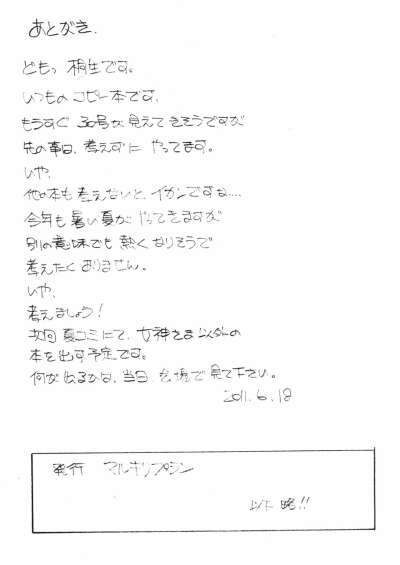 あとがき.
どもっ 桐生です。
いつものコピー本です.
もうすぐ 30号が見えてきそうですが
先の事は、考えずに やってます。
いや、
他の本も考えないと、イカンですな....
今年も暑い夏が やってきますが
別の意味でも熱くなりそうで
考えたく ありません。
いや、
考えましょう!
次回 夏コミにて、女神さま以外の
本を出す予定です。
何が出るかな、当日 会場で見て下さい。
2011.6.18
発行 マルキリプシン
以下 略!!